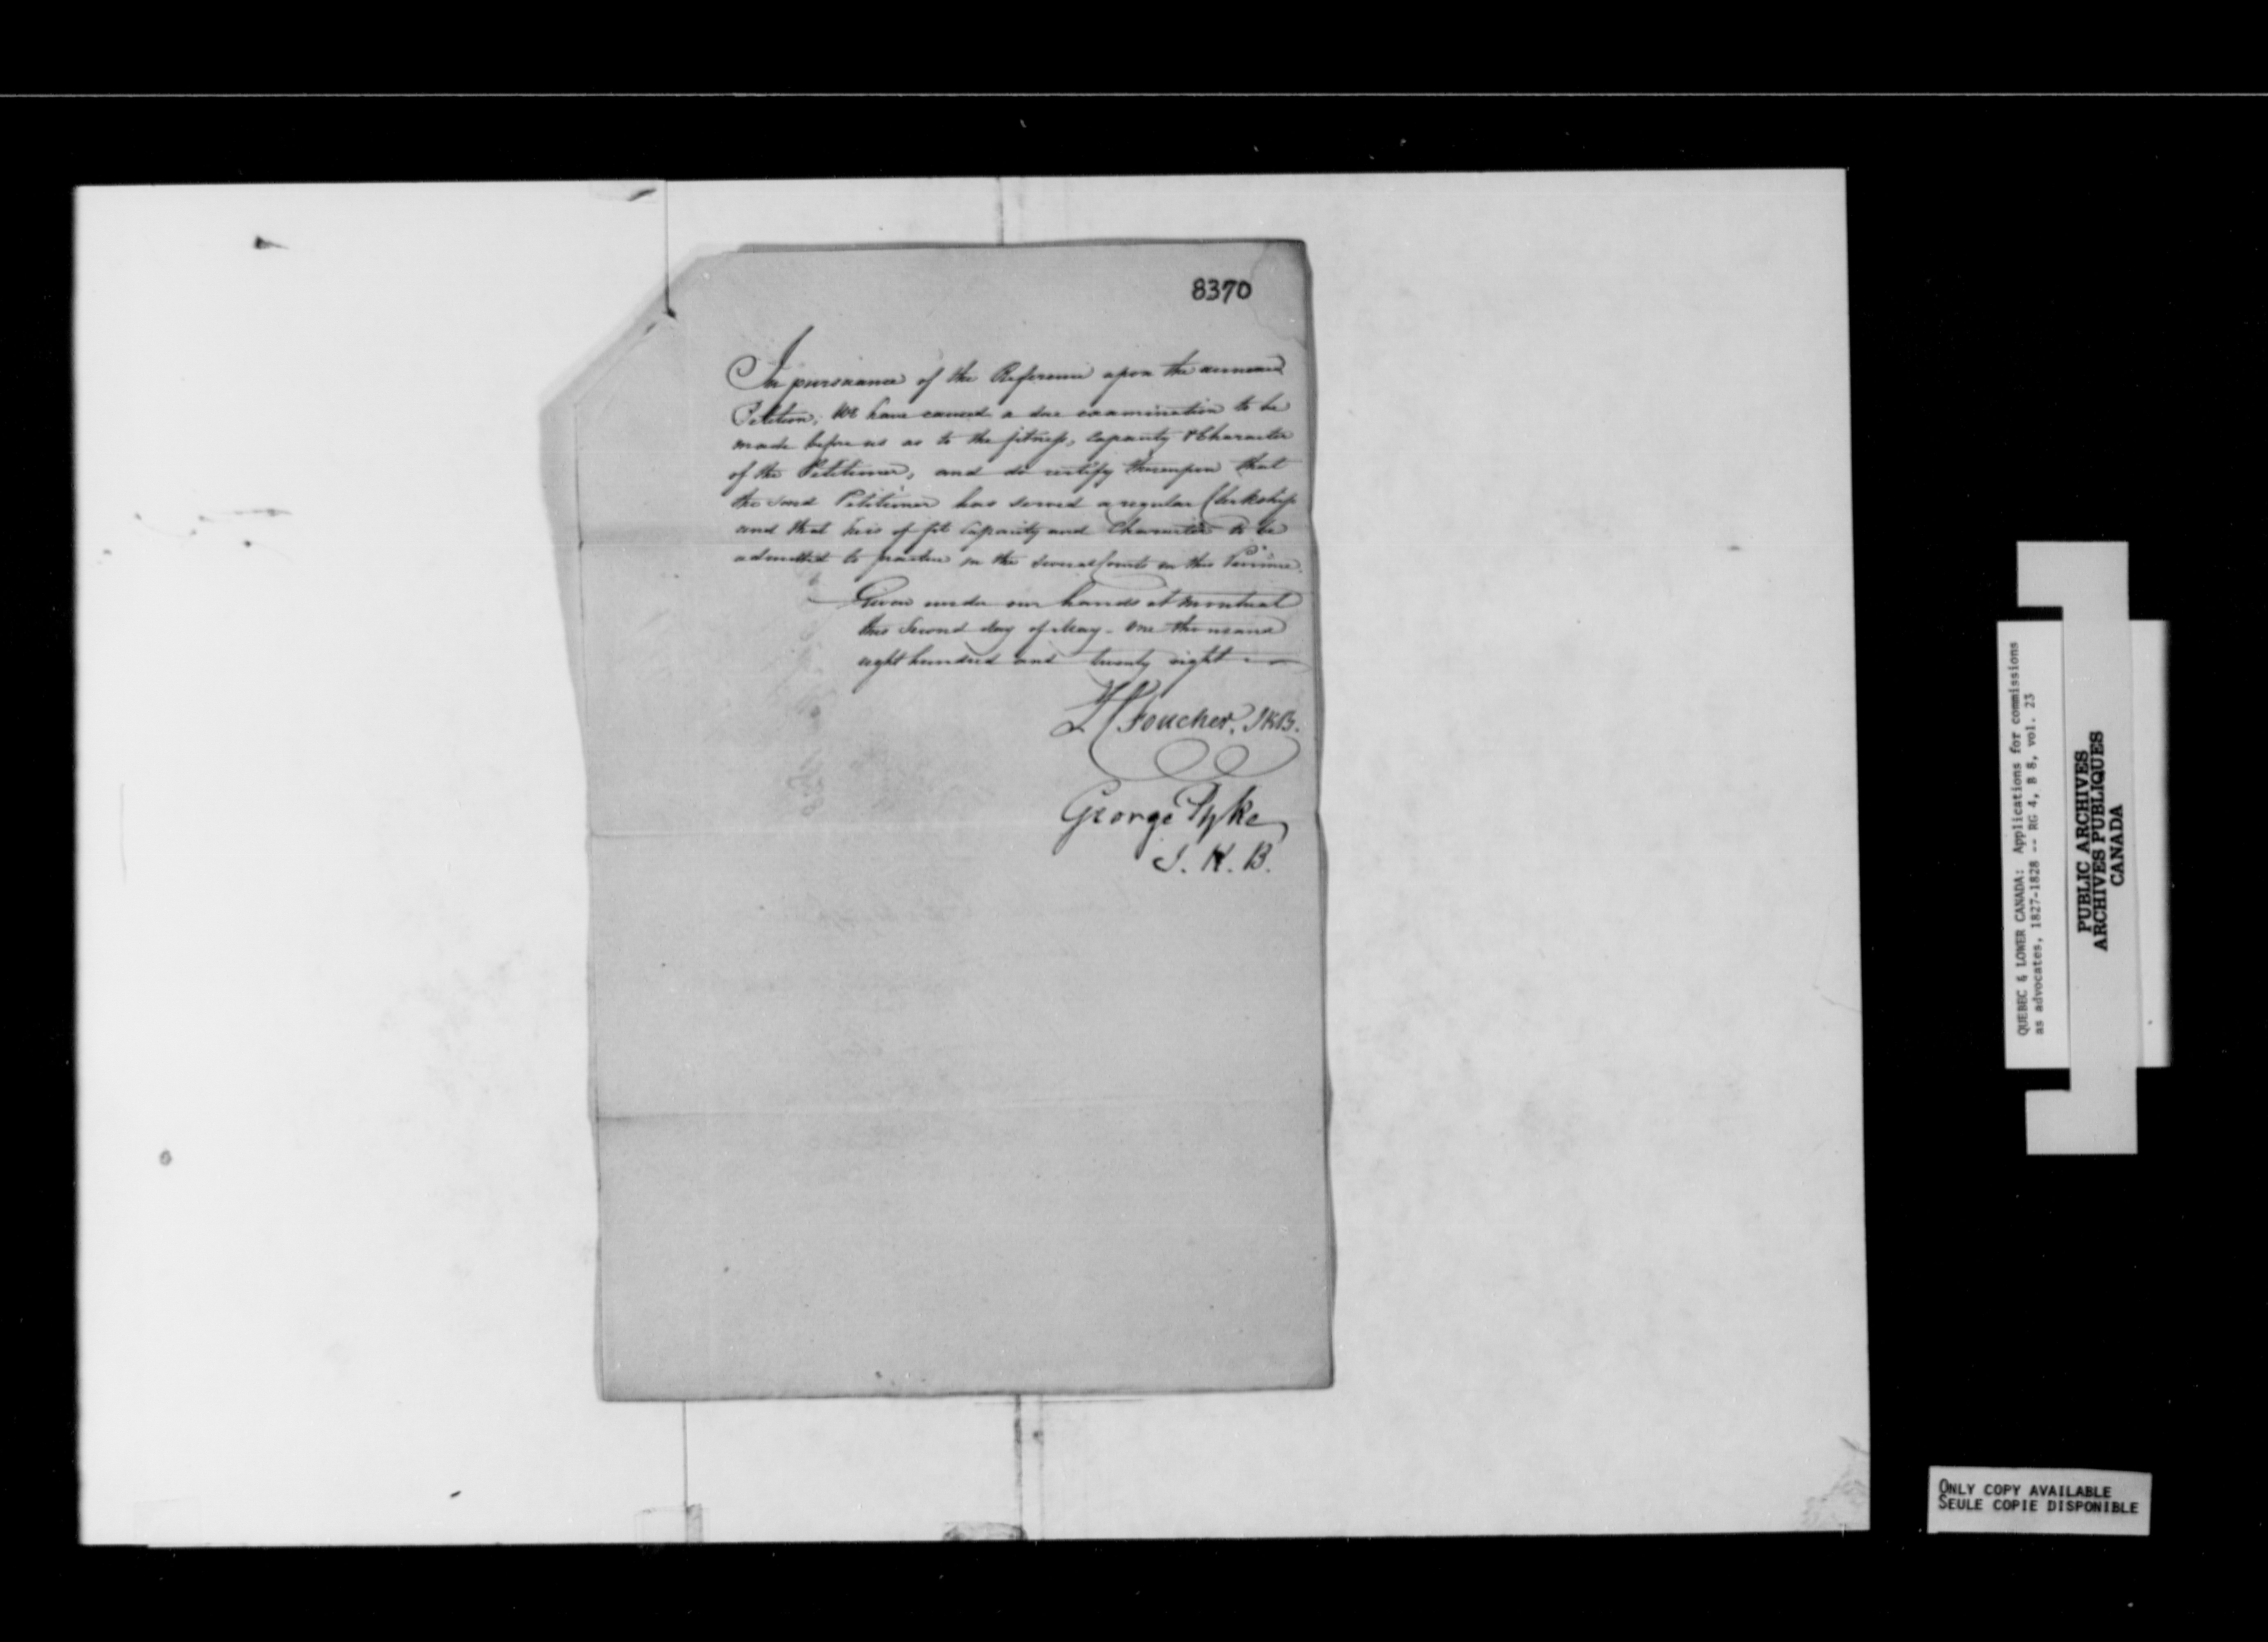 8370
In pursuance of the Reference upon the annexed
Petition, We have caused a due examination to be
made before us as to the fitness, Capacity & Character
of the Petitioner, and do certify thereupon that
the said Petitioner has served a regular Clerkship
and that he is of fit Capacity and Character to be
admitted to practice in the several Courts in this Province.
Given under our hands at Montreal
this Second day of May - One thousand
eight hundred and twenty eight
L C Foucher, J.K.B.
George Pyke
J. K. B.
QUEBEC & LOWER CANADA: Applications for commissions
as advocates, 1827-1828 -- RG 4, B 8, vol. 23
PUBLIC ARCHIVES
ARCHIVES PUBLIQUES
CANADA
ONLY COPY AVAILABLE
SEULE COPIE DISPONIBLE